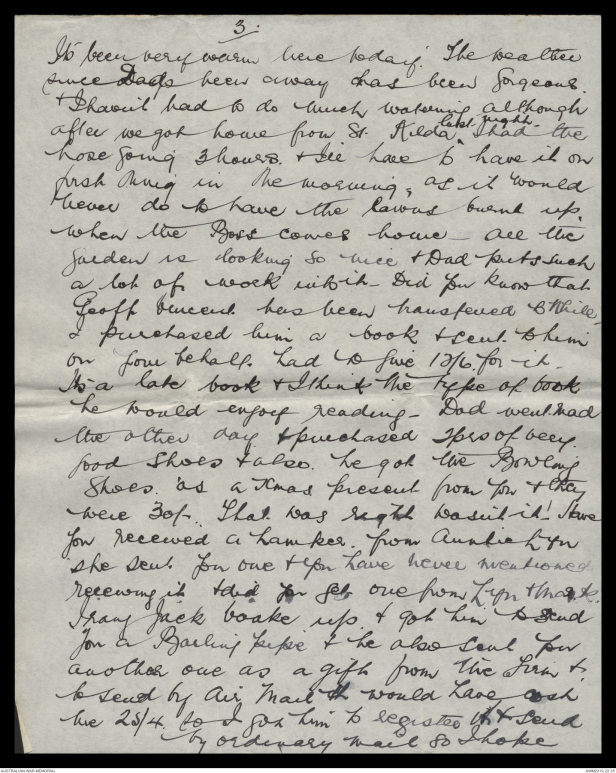 3.
It's been very warm here today. The weather
since Dad's been away has been gorgeous.
& I haven't had to do much watering although
after we got home from St. Kilda last night I had the
hose going 3 hours. & I'll have to have it on
first thing in the morning, as it would
never do to have the lawns burnt up
when the Boss comes home - all the
garden is looking so nice & Dad puts such
a lot of work into it - Did you know that
Geoff Vincent has been transferred to
I purchased him a book & sent to him
on your behalf. had to give 12/6. for it.
It's a late book & I think the type of book
he would enjoy reading - Dad went mad
the other day & purchased 2prs of very
good shoes & also. he got the Bowling
Shoes. as a Xmas present from you & they
were 30/-. That was right wasn't it! Have
you received a hamper. from Auntie Lyn
she sent you one & you have never mentioned
receiving it & did you get one from Lyn & Mark.
I rang Jack up. & got him to send
you a Barling pipe & he also sent you
another one as a gift from the Firm &
to send by Air Mail it would have cost
me 25/4. so I got him to register it & send
by ordinary mail so I hope
AUSTRALIAN WAR MEMORIAL